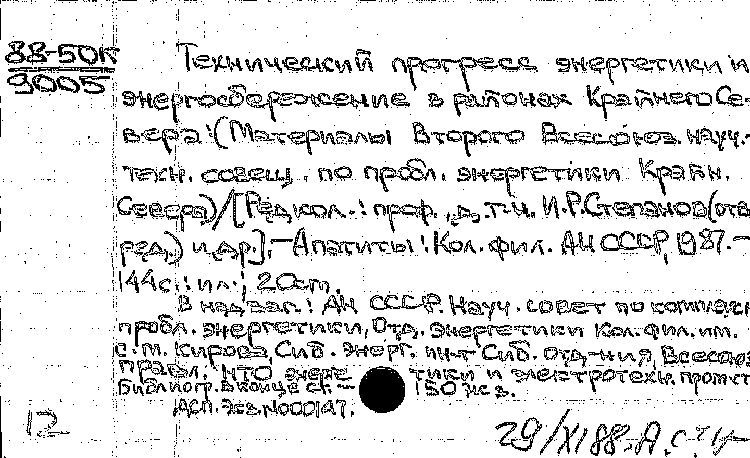 88-50К
9005
Технический прогресс энергетики и
энергосбережение в районах Крайнего Се-
вера: (Материалы Второго Всесоюз. науч.-
техн. совещ. по пробл. энергетики Крайн.
Севера) / [Редкол.: проф., д.т.н. И.Р.Степанов (отв.
ред.) и др.]. - Апатиты: Кол. фил. АН СССР, 1987. -
144 с.: ил.; 20 cm.
В надзаг.: АН СССР. Науч. совет по комплекс
пробл. энергетики, Отд. энергетики Кол. фил. им.
С.М. Кирова, Сиб. энерг. ин-т Сиб. отд-ния, Всесоюз
правл. НТО энерге тики и электротехн. промст
Библиогр. в конце ст. - 150 экз.
Дсп. Экз. N000147.
12
29/XI 88.